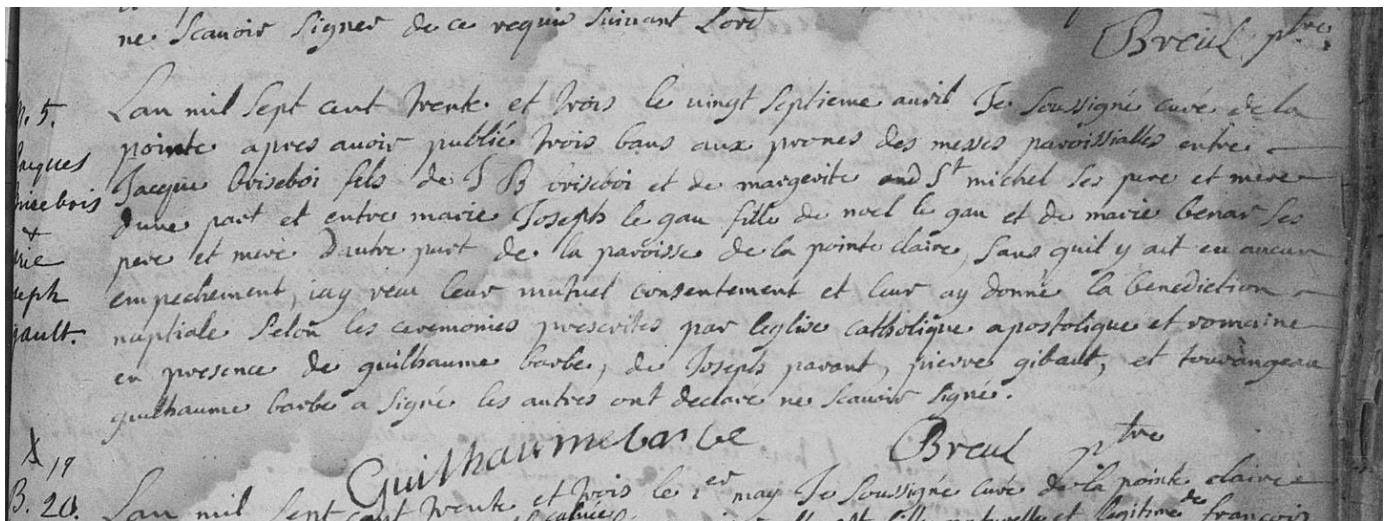 ne scavoir signer de ce requis suivant Lord
Breul ptre
M. 5.
Jaques
Brisebois
+
Marie
Joseph
gault.
Lan mil sept cent trente et trois le vingt septieme avril Je soussigné curé de la
pointe apres avoir publié trois bans aux prones des messes paroissialles entre
Jacque briseboi fils de J B briseboi et de margerite St michel ses pere et mere
dune part et entre marie Joseph le gau fille de noel le gau et de marie benar ses
pere et mere dautre part de la paroisse de la pointe claire, sans quil y ait eu aucun
empechement, iay receu leur mutuel consentement et leur ay donné la benediction
nuptiale selon les ceremonies prescrites par leglise catholique apostolique et romaine
en presence de guilhaume barbe, de Joseph parant, pierre gibaut, et tourangeau
guilhaume barbe a signé les autres ont declaré ne scavoir signé.
Guilhaume barbe
Breul ptre
X 19
B. 20.
Lan mil sept cent trente et trois le 1er may Je soussigné curé de la pointe claire
et legitime de francois